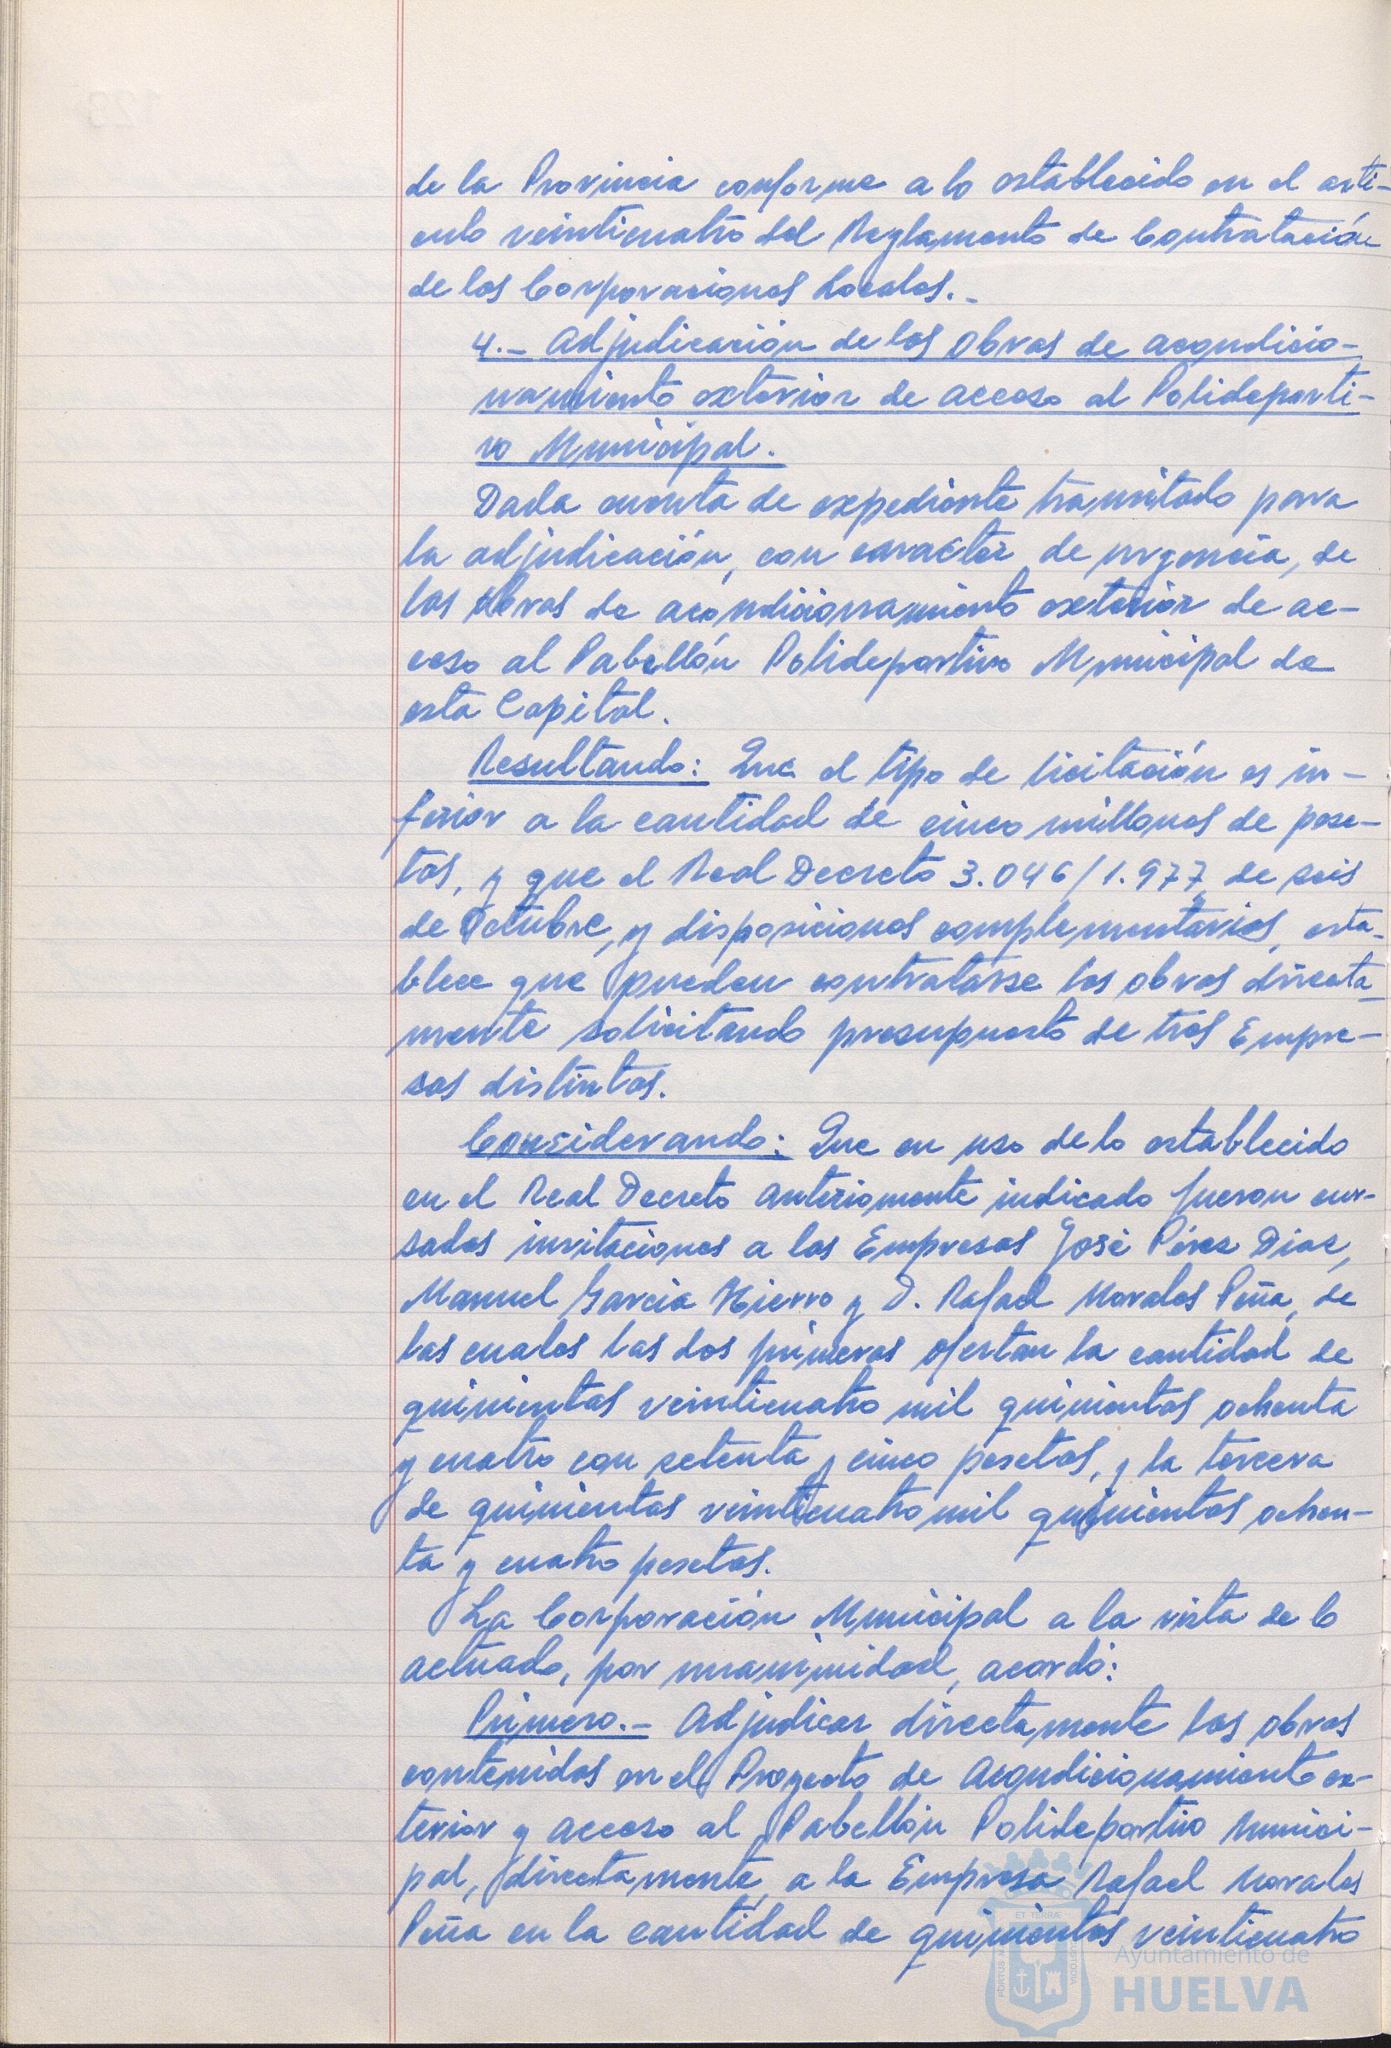 de la Provincia conforme a lo establecido en el artí-
culo veinticuatro del Reglamento de Contratación
de las Corporaciones Locales.-
4.- Adjudicación de las Obras de acondicio-
namiento exterior de acceso al Polideporti-
vo Municipal.
Dada cuenta de expediente tramitado para
la adjudicación, con caracter de urgencia, de
las obras de acondicionamiento exterior de ac-
ceso al Pabellón Polideportivo Municipal de
esta Capital.
Resultando: Que el tipo de licitación es in-
ferior a la cantidad de cinco millones de pese-
tas, y que el Real Decreto 3.046/1.977, de seis
de Octubre, y disposiciones complementarias, esta-
blece que pueden contratarse las obras directa-
mente solicitando presupuesto de tres Empre-
sas distintas.
Considerando: Que en uso de lo establecido
en el Real Decreto anteriomente indicado fueron cur-
sadas invitaciones a las Empresas José Pérez Diaz,
Manuel García Hierro y D. Rafael Morales Peña, de
las cuales las dos primeras ofertan la cantidad de
quinientas veinticuatro mil quinientas ochenta
y cuatro con setenta y cinco pesetas, y la tercera
de quinientas veinticuatro mil quinientas ochen-
ta y cuatro pesetas.
La Corporación Municipal a la vista de lo
actuado, por unanimidad, acordó:
Primero.- Adjudicar directamente las obras
contenidas en el Proyecto de Acondicionamiento ex-
terior y acceso al Pabellón Polideportivo Munici-
pal, directamente, a la Empresa Rafael Morales
Peña en la cantidad de quinientas veinticuatro
ET TERRAE
PORTUS MARIS
CUSTODIA
Ayuntamiento de
HUELVA